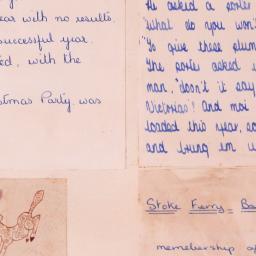 ear with no results.
successful year.
ed, with the
stmas Party was
He asked a porter
"What do you won't
"To give these plum
The porter asked
man, "don't it say
Victorias! And moi
loaded this year, so
and bring im u
Stoke Ferry Ba
memebership of